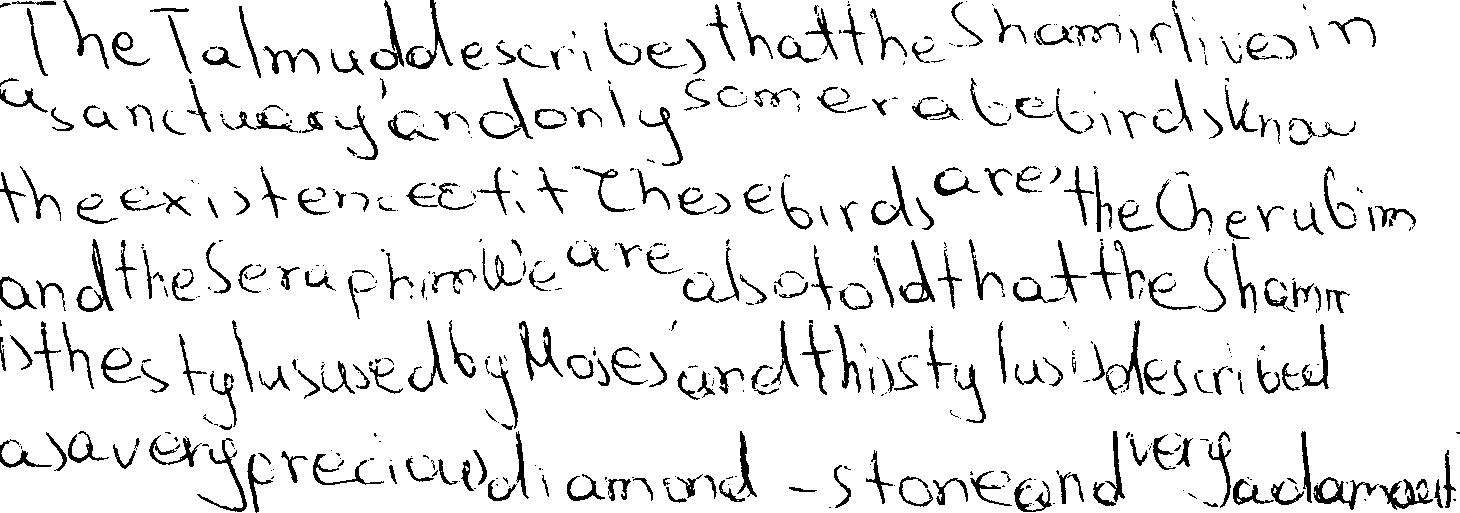 The Talmud describes that the Shamir lives in
a sanctuary and only some rabe birds know
the existence of it These birds are the Cherubim
and the Seraphim We are also told that the Shamir
is the stylus used by Moses and this stylus is described
as a very precious diamond - stone and very adamant